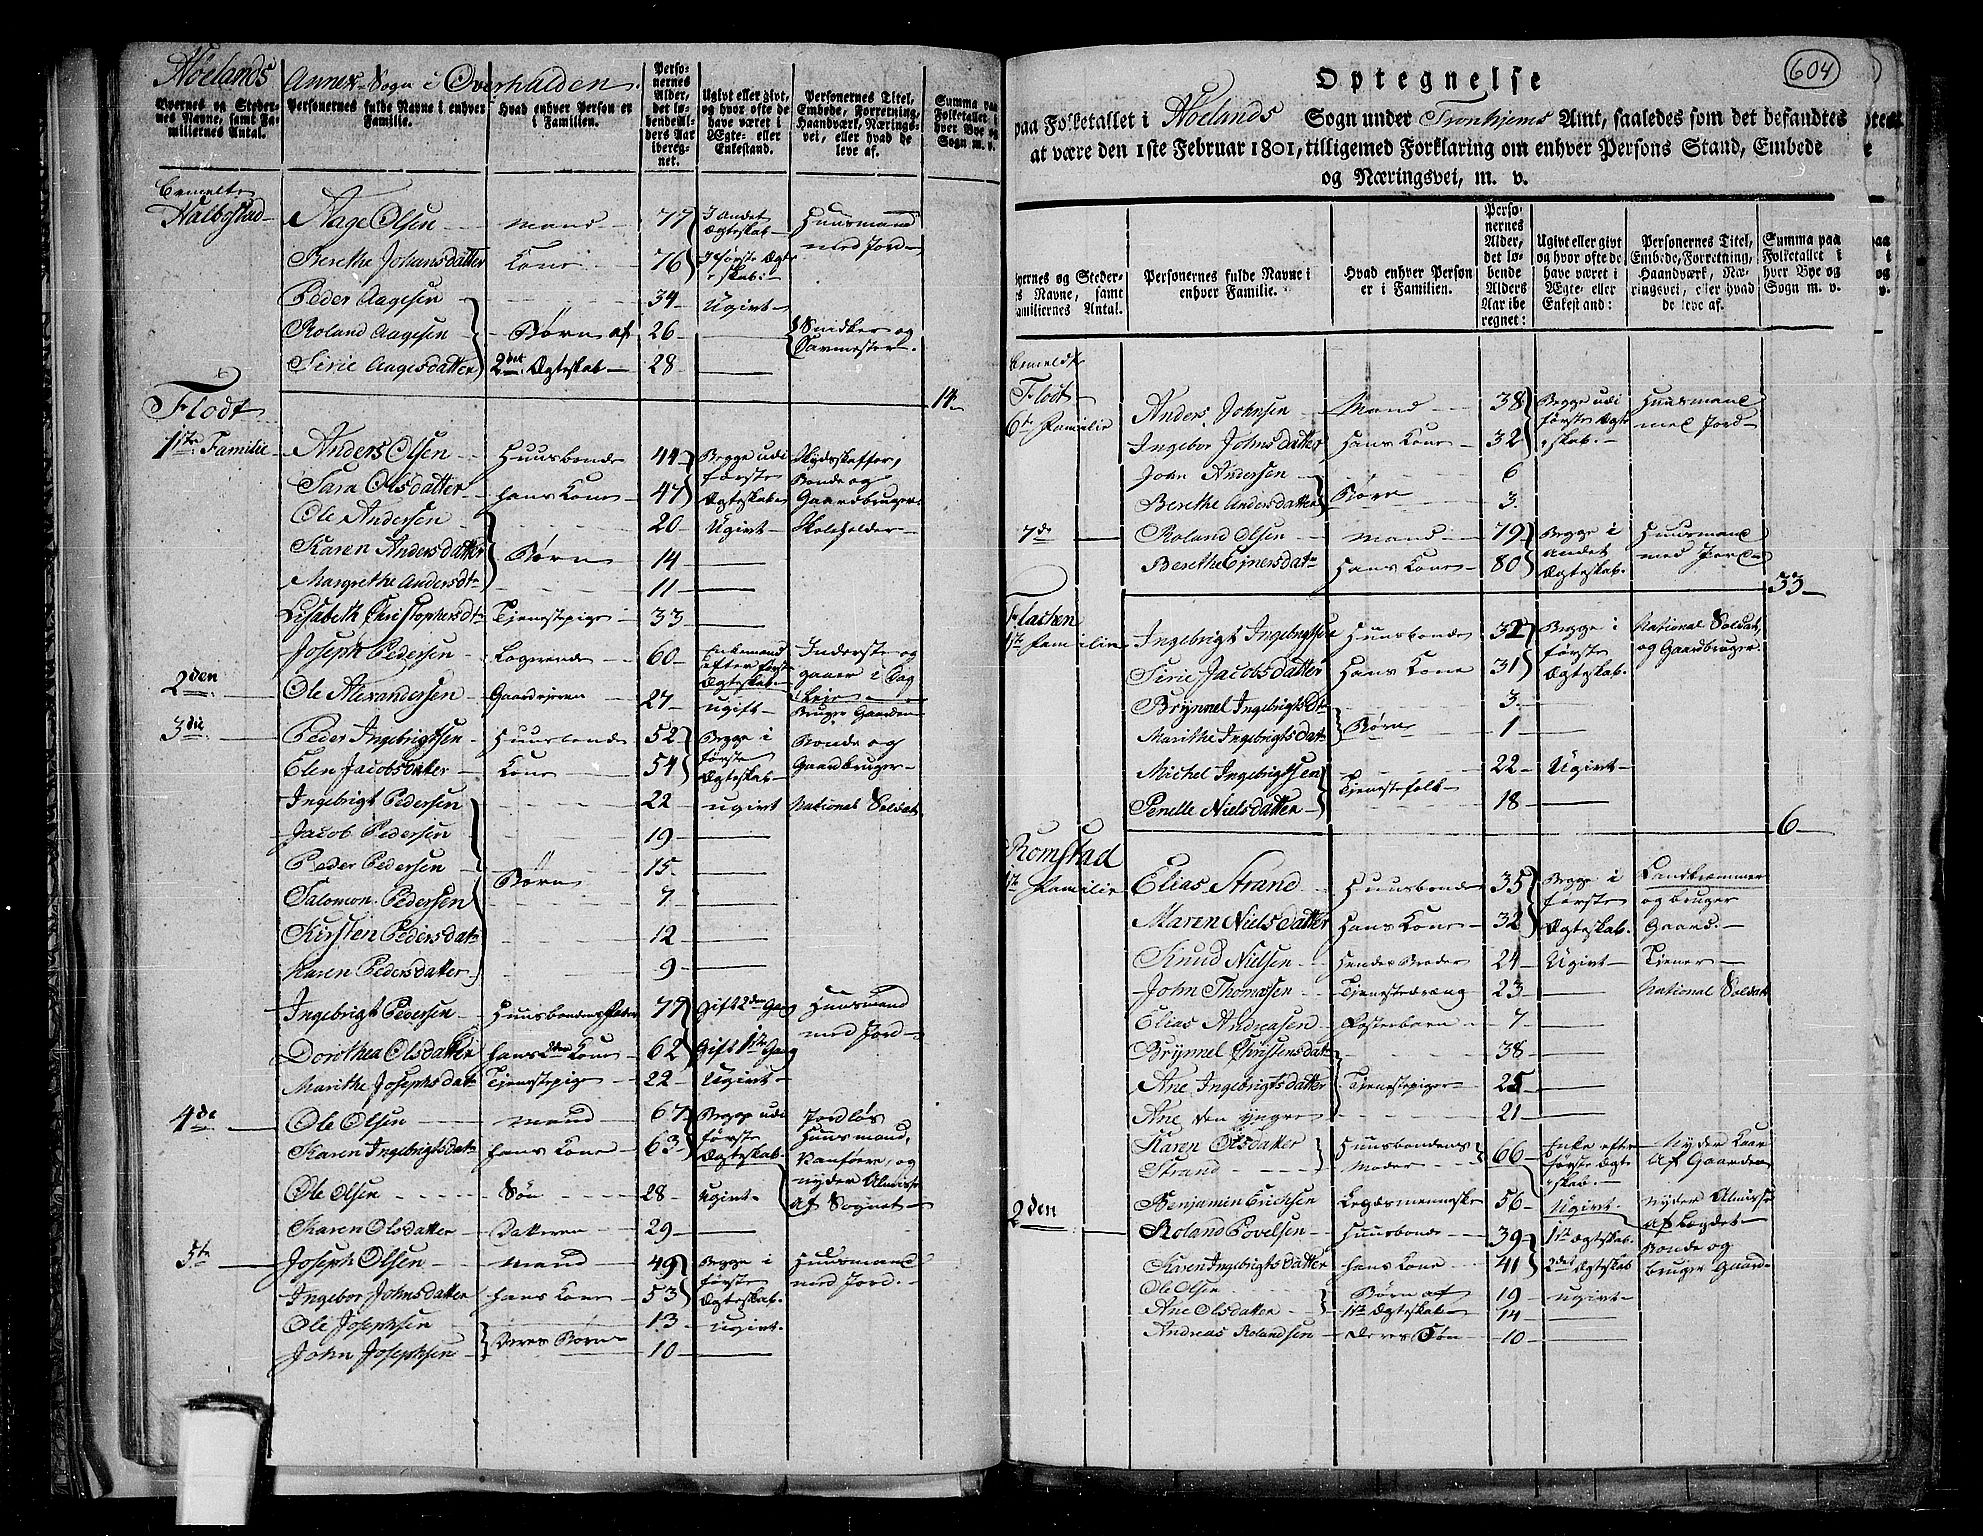 Høelands Annex-Sogn i Overhalden.
Byernes og Stedernes Navne, samt Familiernes Antal.
Personernes fulde Navne i enhver Familie.
Hvad enhver Person er i Familien.
Personernes Alder, det løbende Alders Aar iberegnet.
Ugivt eller givt, og hvor ofte de have været i Ægte- eller Enkestand.
Personernes Titel, Embede, Forretning, Haandværk, Næringsvei, eller hvad de leve af.
Summa paa Folketallet i hver Bye og Sogn m. v.
Bemelte
Halbostad Aage Olsen Mand 77 I Andet Ægteskab Huusmand med Jord
Berethe Johansdatter Kone 76 I første Ægteskab:
Peder Aagesen 34 Ugivt
Roland Aagesen Børn af 26 Snidker og Savmester
Sirie Aagesdatter 2det Ægteskab 28
14
Flodt
1ste Familie Anders Olsen Huusbonde 44 Begge udi første Ægteskab Bonde og Gaardbruger
Sara Olsdatter Hans Kone 47
Ole Andersen 20 Ugivt Skoleholder
Karen Andersdatter Børn 14
Margrethe Andersdtr 11
Lisabeth Christophersdtr Tjenestepige 33
Joseph Pedersen Logerende 60 Enkemand efter første Ægteskab Inderste og gaaer i Dag Leje
2den Ole Alexandersen 27 ugift Bruger Gaarden
3die Peder Ingebrigtsen Huusbonde 52 Begge i første Ægteskab Bonde og Gaardbruger
Elen Jacobsdatter Kone 54
Ingebrigt Pedersen 22 ugivt National Soldat
Jacob Pedersen 19
Peder Pedersen 15
Salomon Pedersen Børn 7
Kirsten Pedersdatr 12
Karen Pedersdatter 9
Ingebrigt Pedersen Huusbondens Fader 77 Gift 2den Gang Huusmand med Jord
Dorothea Olsdatter Hans 2den Kone 62 Gift 1ste Gang
Marithe Josephsdatr Tjenestepige 22 Ugivt
4de Ole Olsen Mand 67 Begge udi første Ægteskab Jordløs Huusmand, Vanføre, og nyder Almisse af Sognet
Karen Ingebrigtsdatr Hans Kone 63
Ole Olsen Søn 28 Ugivt
Karen Olsdatter Datteren 29
5te Joseph Olsen Mand 49 Begge i første Ægteskab. Huusmand med Jord.
Ingebor Johnsdatter Hans Kone 53
Ole Josephsen 13 Ugivt
John Josephsen Deres Børn 10
604
Optegnelse
paa Folketallet i Høelands Sogn under Tronhjems Amt, saaledes som det befandtes
at være den 1ste Februar 1801, tilligemed Forklaring om enhver Persons Stand, Embede
og Næringsvei, m. v.
Byernes og Stedernes Navne, samt Familiernes Antal.
Personernes fulde Navne i enhver Familie.
Hvad enhver Person er i Familien.
Personernes Alder, det løbende Alders Aar iberegnet:
Ugivt eller givt og hvor ofte de have været i Ægte- eller Enkestand:
Personernes Titel, Embede, Forretning, Haandværk, Næringsvei, eller hvad de leve af.
Summa paa Folketallet i hver Bye og Sogn m. v.
Bemeldt
Flodt
6te Familie Anders Johnsen Mand 38 Begge udi første Ægteskab. Huusmand med Jord
Ingebor Johnsdatter Hans Kone 32
John Andersen 6
Berethe Andersdatter Børn 3
7de Roland Olsen Mand 79 Begge i Andet Ægteskab. Huusmand med Jord
Berethe Ejnersdatr Hans Kone 80
33
Flasken
1ste Familie Ingebrigt Ingebrigtsen Huusbonde 32 Begge i første Ægteskab. National Soldat, og Gaardbruger
Sirie Jacobsdatter Hans Kone 31
Brynnel Ingebrigtsdtr 3
Marithe Ingebrigtsdatr Børn 1
Michel Ingebrigtsen 22 Ugivt
Penelle Nielsdatter Tjenestefolk 18
6
Romstad
1te Familie Elias Strand Huusbonde 35 Begge i første Ægteskab. og bruger Gaard.
Maren Nielsdatter Hans Kone 32
Knud Nielsen Hendes Broder 24 Ugivt Tjener
John Thomesen Tjenestedreng 23 National Soldat
Elias Andreasen Fosterbarn 7
Brynnel Christensdatr 38
Ane Ingebrigtsdatter Tjenestepiger 25
Ane den yngre 21
Karen Olsdatter Strand Huusbondens Moder 66 Enke efter første Ægteskab. Nyder Kaar af Gaarden
Benjamin Erichsen Legdsmenneske 56 Ugivt nyder Almisse af Legdet
2den Roland Povelsen Huusbonde 39 1te Ægteskab. Bonde og bruger Gaard
Karen Ingebrigtsdatter Hans Kone 41 2det Ægteskab
Ole Olsen Børn af 19 ugivt
Ane Olsdatter 1te Ægteskab 14
Andreas Rolandsen Deres Søn 10